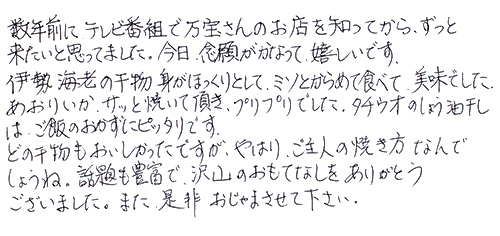 数年前に テレビ番組で万宝さんのお店を知ってから、ずっと
来たいと思ってました。今日、念願がかなって、嬉しいです。
伊勢海老の干物 身がほっくりとして、ミソとからめて食べて、美味でした。
あおりいか、サッと焼いて頂き、プリプリでした。タチウオのしょう油干し
は、ご飯のおかずにピッタリです。
どの干物もおいしかったですが、やはり、ご主人の焼き方 なんで
しょうね。話題も豊富で、沢山のおもてなしを ありがとう
ございました。また、是非 おじゃまさせて下さい.